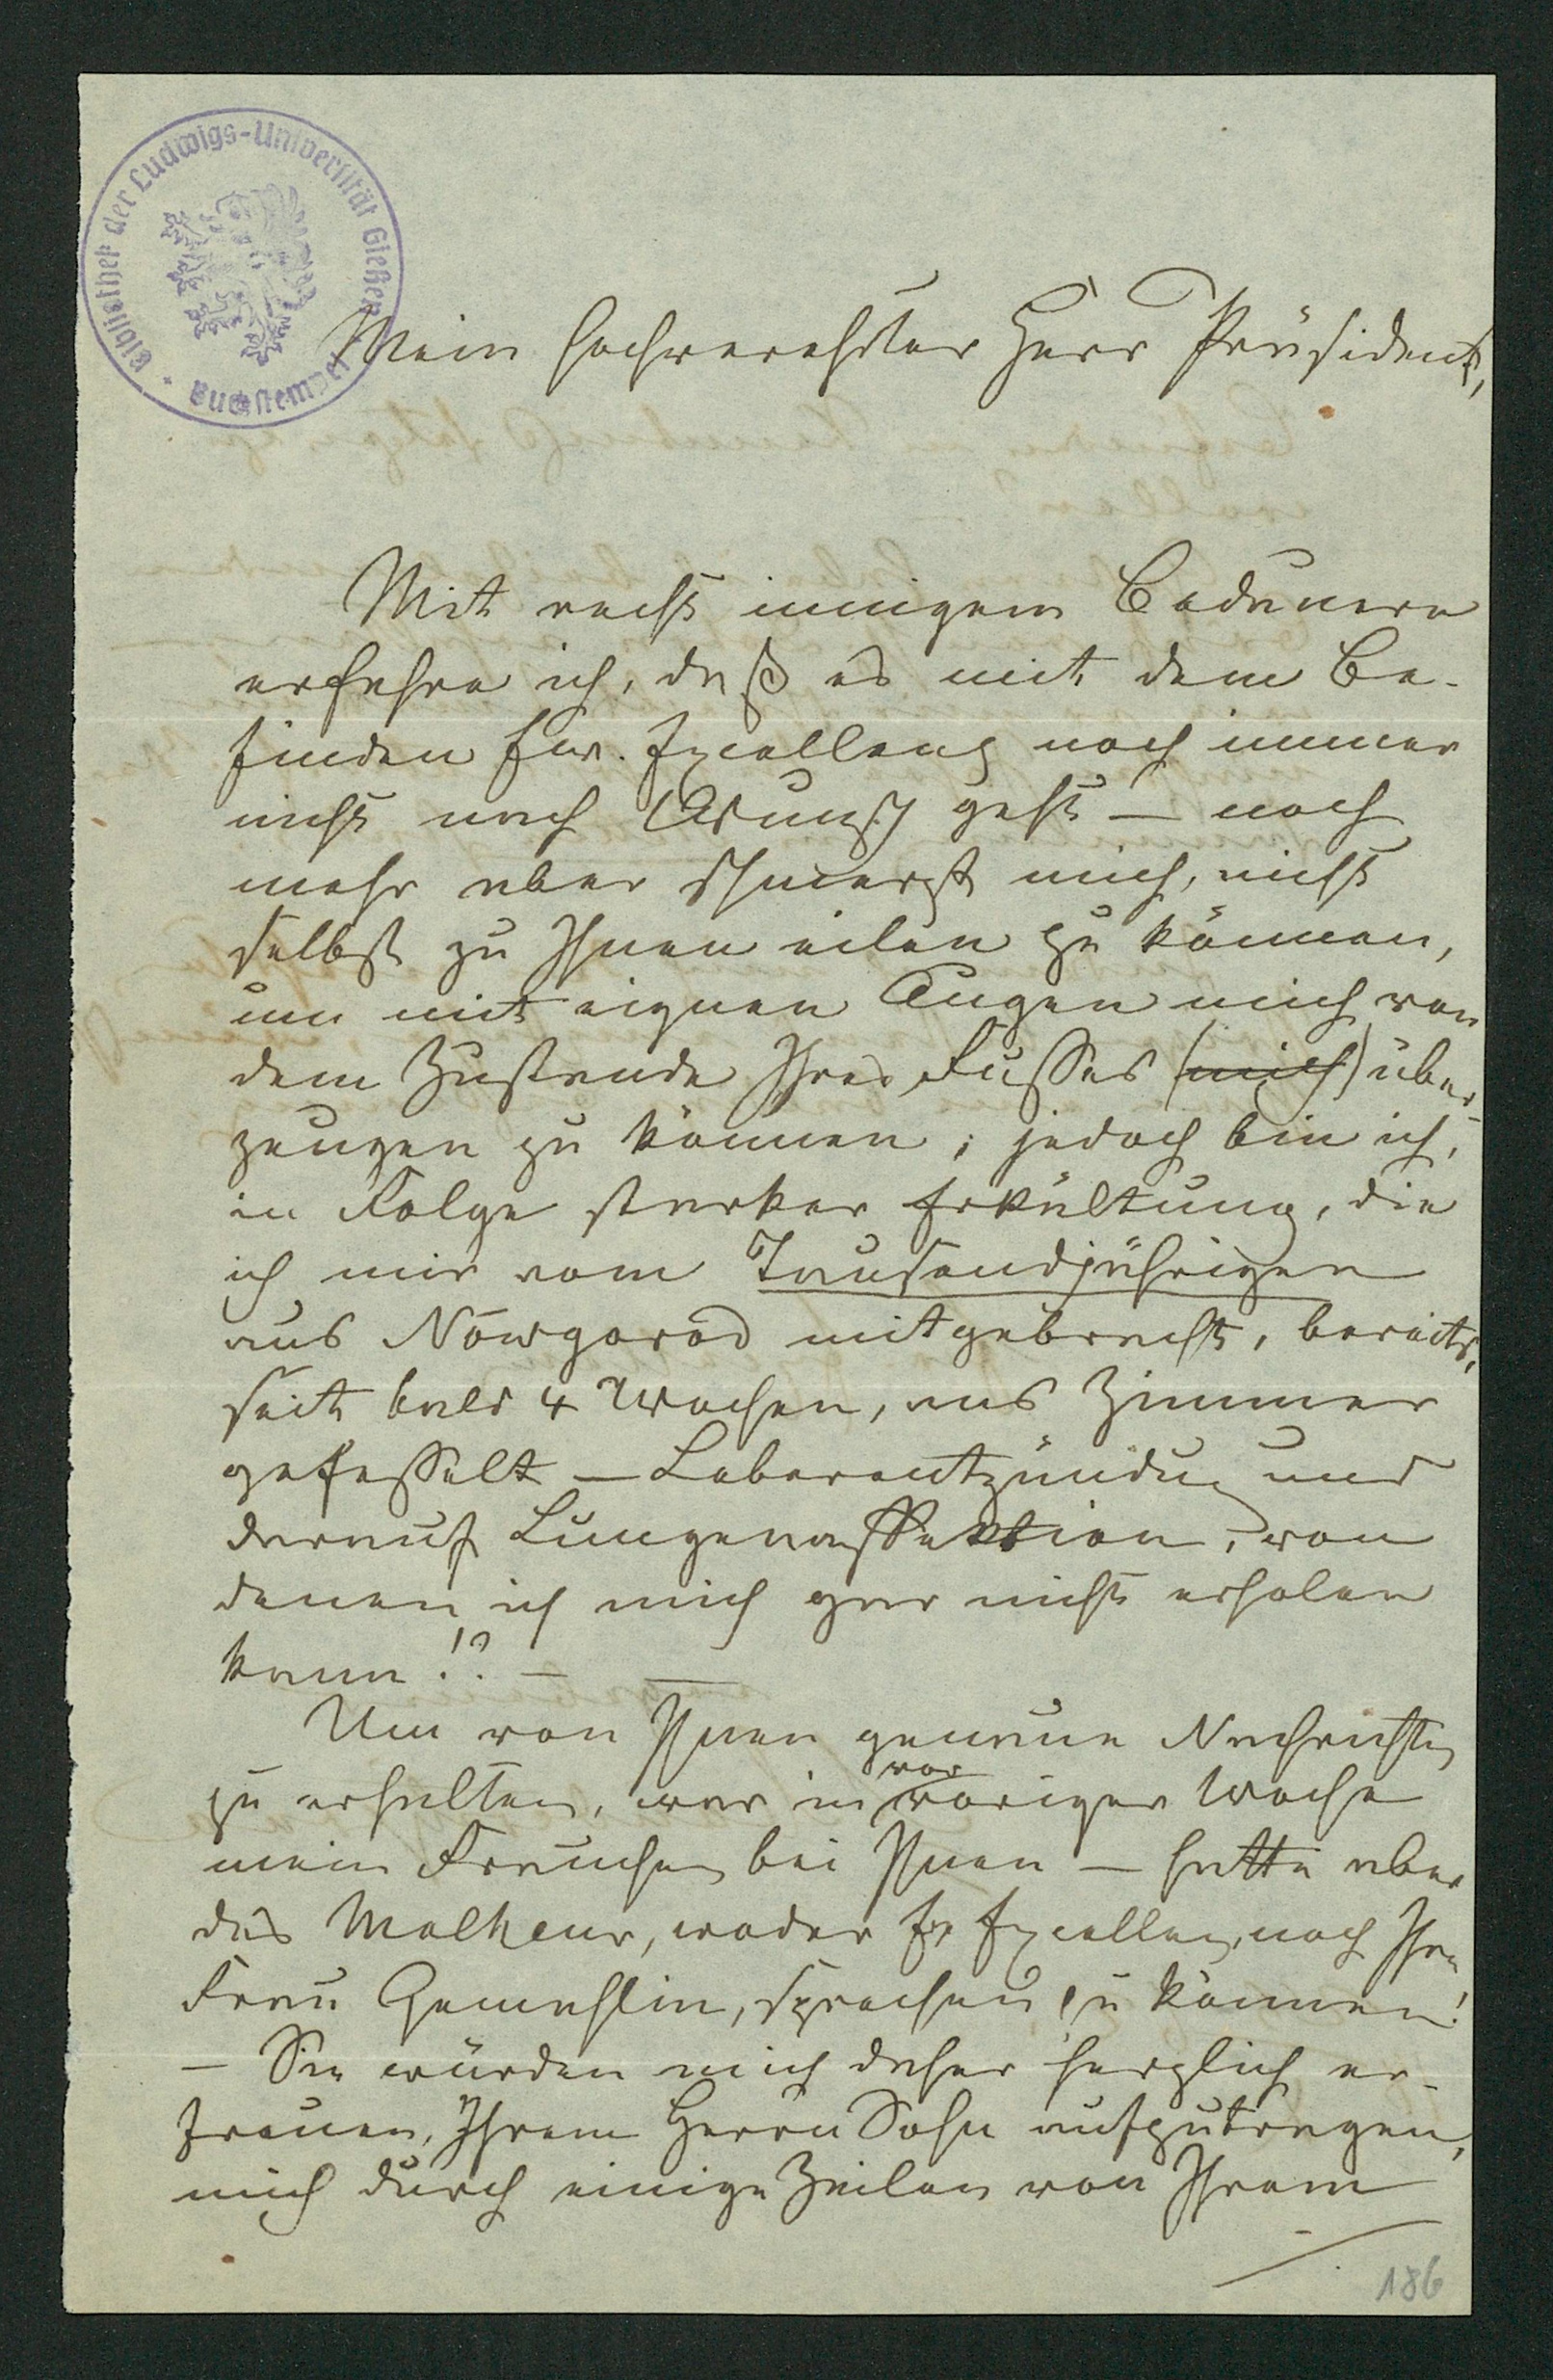 Bibliothek der Ludwigs-Universität Gießen
Buchstempel
Mein hochverehrter Herr Präsident,
Mit recht innigem Bedauern
erfahre ich, daß es mit dem Be-
finden Ew. Excellenz noch immer
nicht nach Wunsch geht – noch
mehr aber schmerzt mich, nicht
selbst zu Ihnen eilen zu können,
um mit eignen Augen mich von
dem Zustande Ihres Fusses (mich) über-
zeugen zu können; jedoch bin ich,
in Folge starker Erkältung, die
ich mir vom Tausendjährigen
aus Nowgorod mitgebracht, bereits,
seit bald 4 Wochen, ans Zimmer
gefesselt – Leberentzündung und
darauf Lungenaffektion, von
denen ich mich gar nicht erholen
kann!? – –
Um von Ihnen genaue Nachrichten
zu erhalten, war in
vor
voriger Woche
mein Frauchen bei Ihnen – hatte aber
das Malheur, weder Ew Excellenz, noch Ihre
Frau Gemahlin, sprechen zu können!
– Sie würden mich daher herzlich er-
freuen, Ihrem Herrn Sohn aufzutragen,
mich durch einige Zeilen von Ihrem
186